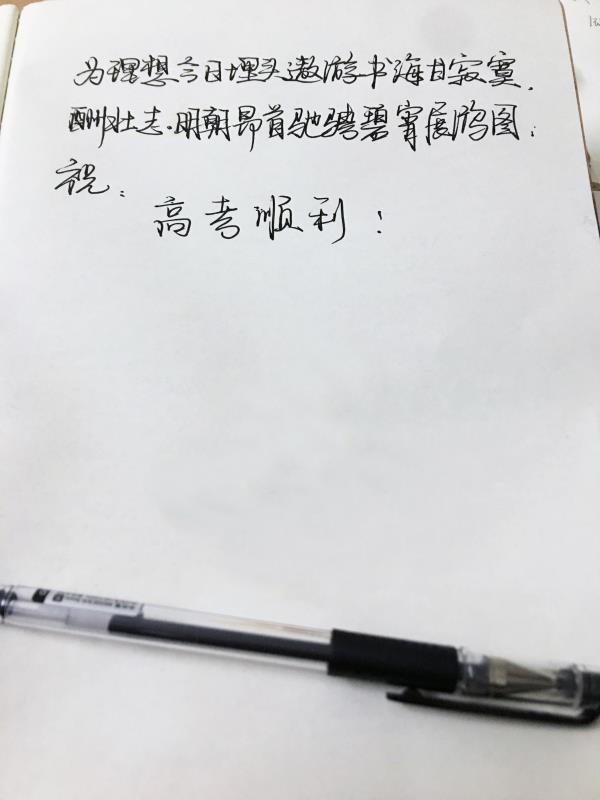 为理想今日埋头遨游书海甘寂寞.
酬壮志.明朝昂首驰骋碧霄展鸿图;
祝:
高考顺利!